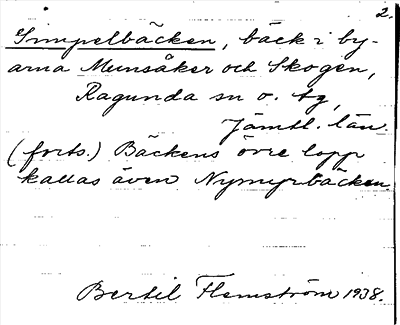 2.
Gimpelbäcken, bäck i by-
arna Munsåker och Skogen,
Ragunda sn o. tg,
Jämtl. län.
(forts.) Bäckens övre lopp
kallas även Nymyrbäcken.
Bertil Flemström 1938.